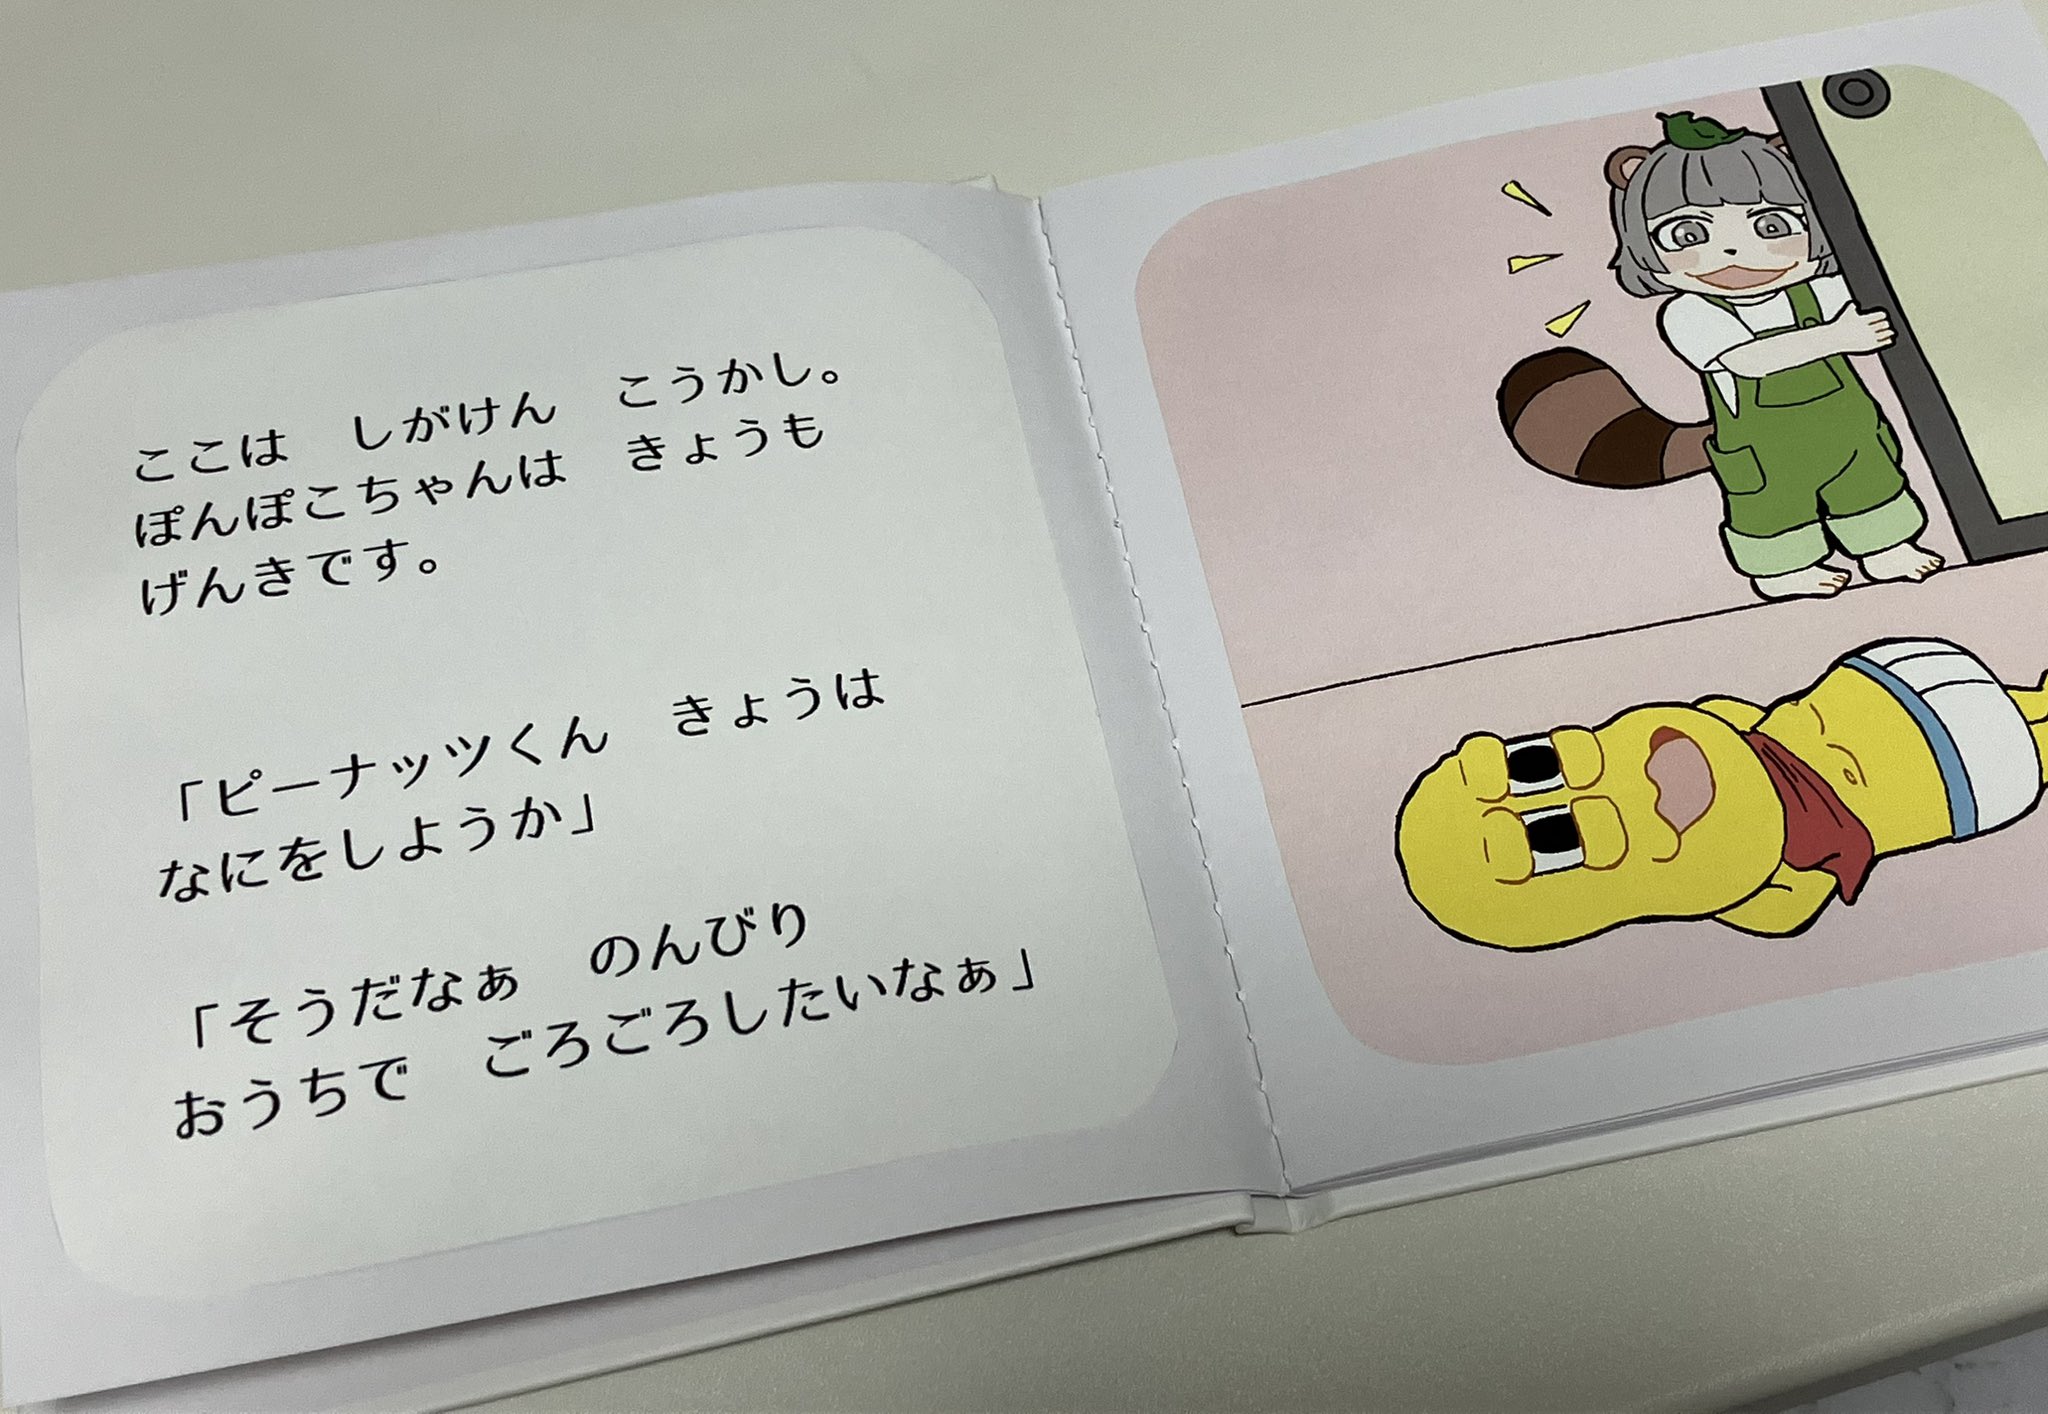 ここは　しがけん　こうかし。
ぽんぽこちゃんは　きょうも
げんきです。
「ピーナッツくん　きょうは
なにをしようか」
「そうだなぁ　のんびり
おうちで　ごろごろしたいなぁ」